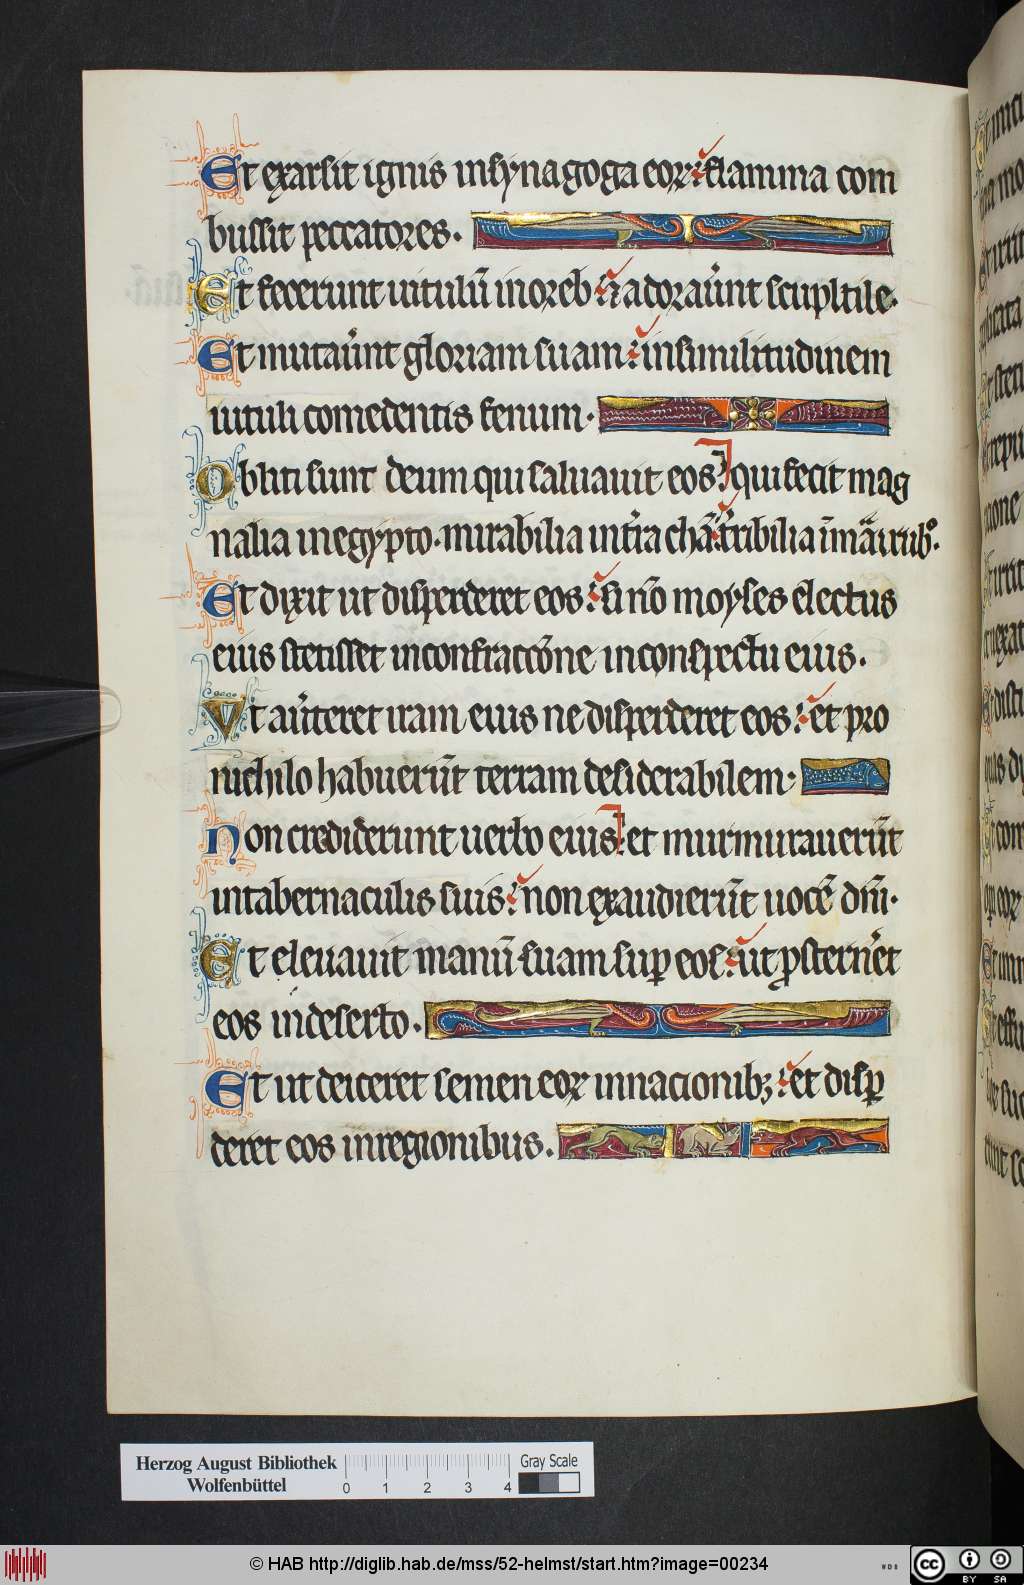 Et exarsit ignis insynagoga eoꝝ: flamma com
bussit peccatores.
Et fecerunt uitulū inoreb: ⁊ adorauͬnt sculptile.
Et mutauͬnt gloriam suam: insimilitudinem
uituli comedentis fenum.
Obliti sunt deum qui saluauit eos: qui fecit mag
nalia inegypto. mirabilia intͬra chā: tͬribilia īmaͬi rubͦ.
Et dixit ut disperderet eos: si nō moyses electus
eius stetisset inconfraccōne inconspectu eius.
Vt auͬteret iram eius ne disperderet eos: et pro
nichilo habuerūt terram desiderabilem.
Non crediderunt uerbo eius: et murmurauerūt
intabernaculis suis: non exaudierūt uocē dn̄i.
Et eleuauit manū suam suꝑ eos: ut ꝓsternͬet
eos indeserto.
Et ut deiceret semen eoꝝ innacionibꝫ: et disꝑ
deret eos inregionibus.
Herzog August Bibliothek
Wolfenbüttel
0 1 2 3 4
Gray Scale
© HAB http://diglib.hab.de/mss/52-helmst/start.htm?image=00234
WDB
cc BY SA